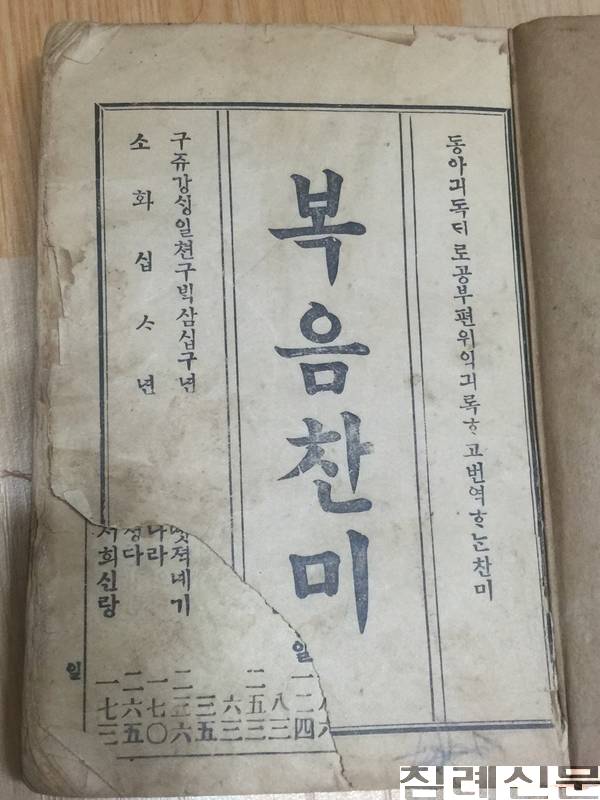 동아긔독ᄃᆡ로공부편위익긔록ᄒᆞ고번역ᄒᆞᄂᆞᆫ찬미
복음찬미
구쥬강ᄉᆡᆼ일쳔구ᄇᆡᆨ삼십구년
소화십ᄉᆞ년
젹네기
나라
다
희신랑
일
一二四
八三
二五三
六三
三五
二三六
一七〇
二六五
一七三
일
침례신문